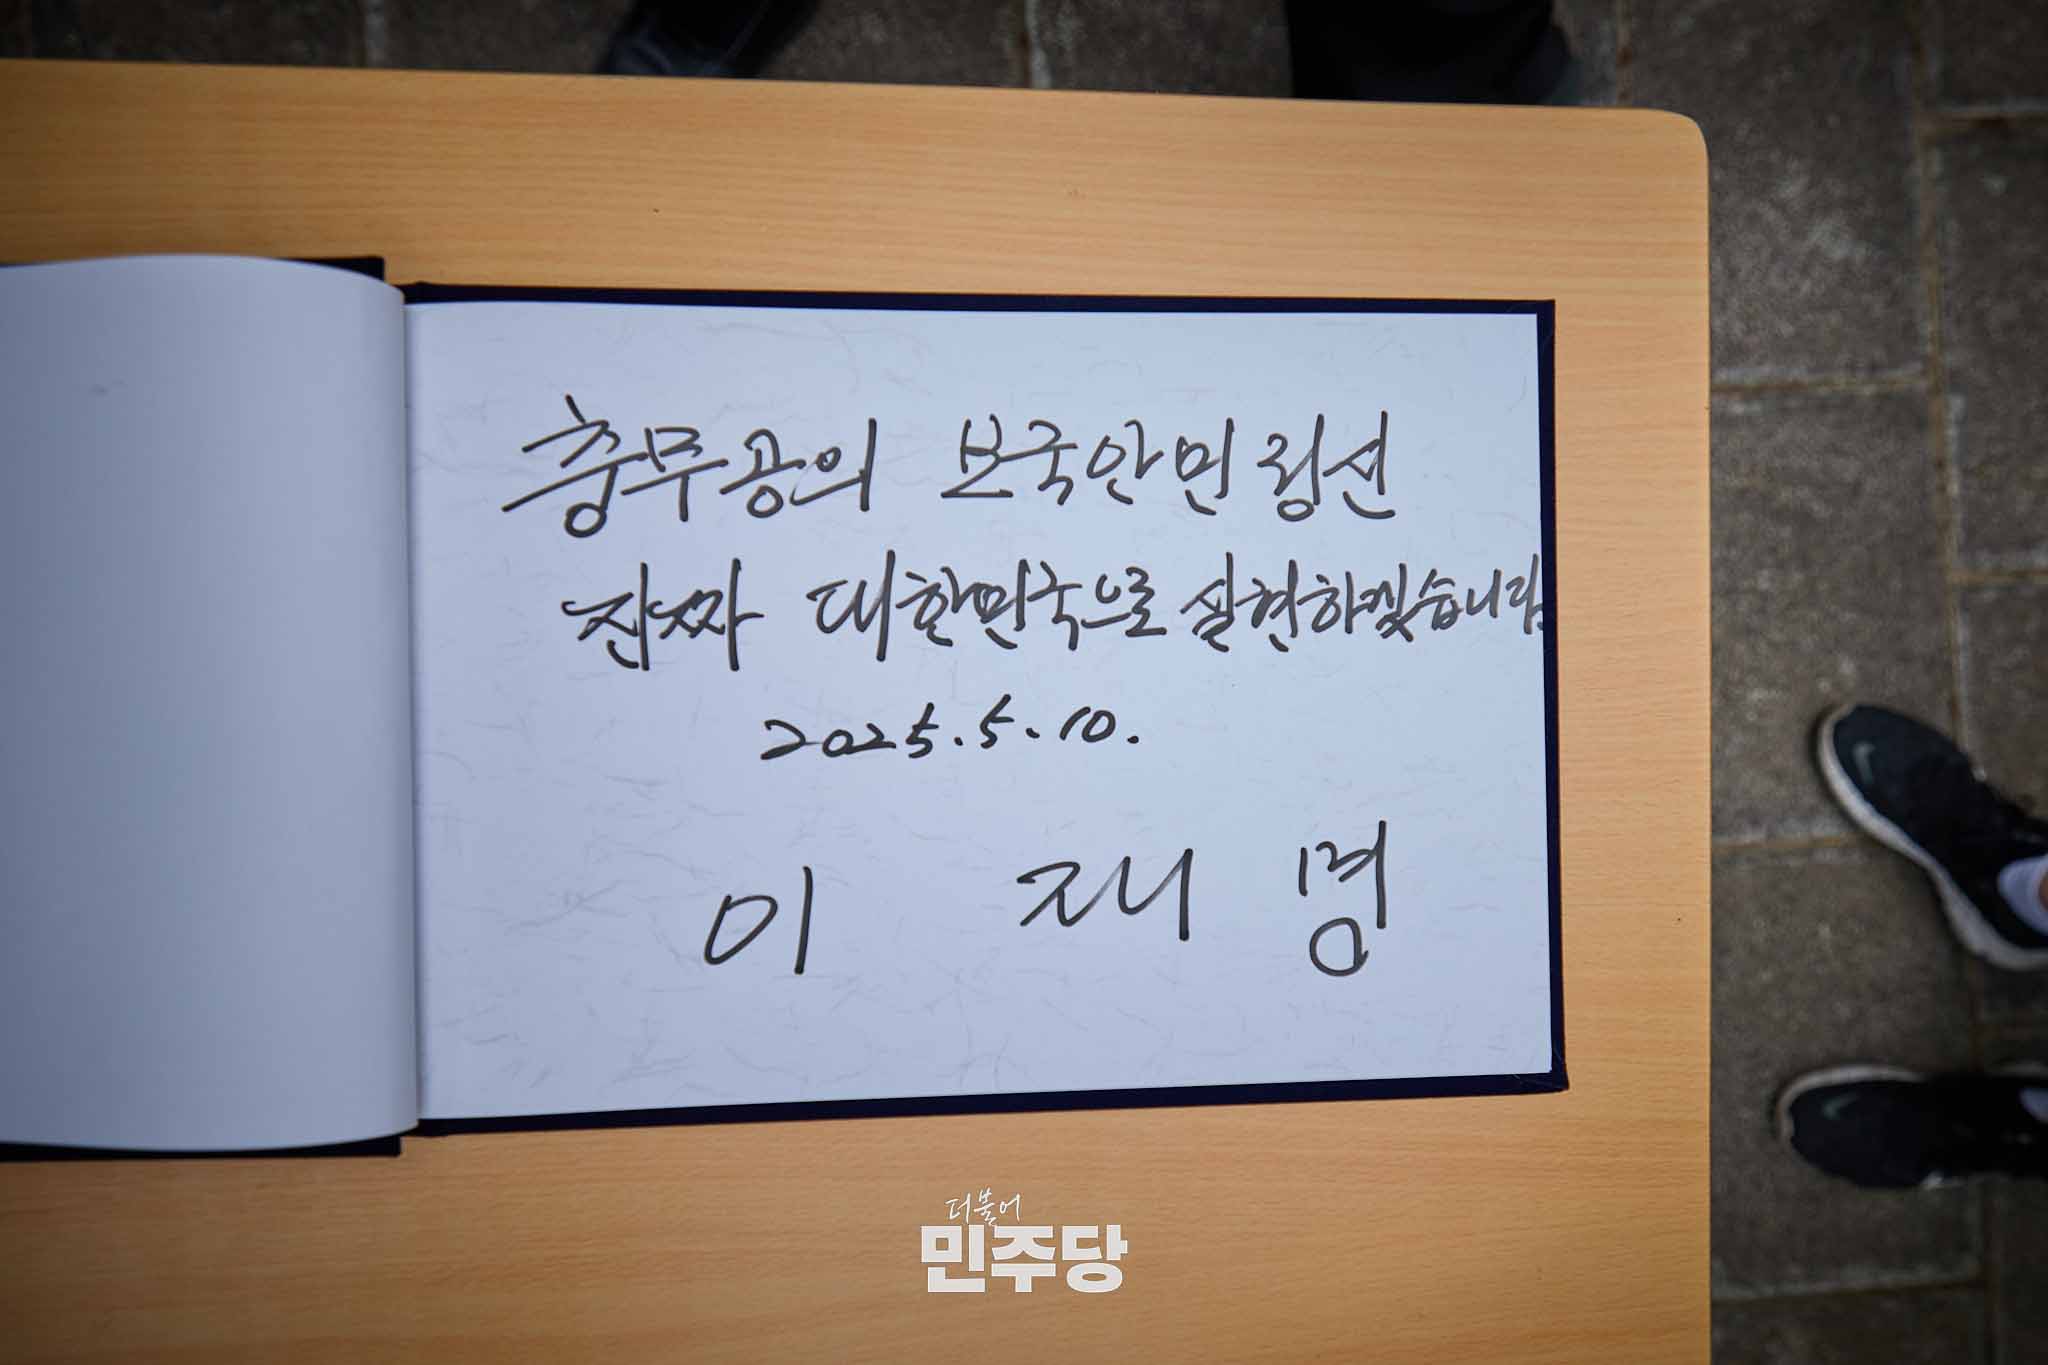 충무공의 보국안민 정신
진짜 대한민국으로 실현하겠습니다.
2025.5.10.
이 재 명
더불어
민주당